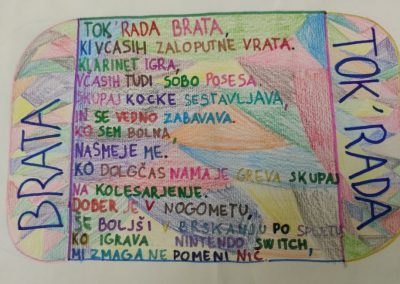 BRATA
TOK'RADA BRATA,
KI VČASIH ZALOPUTNE VRATA.
KLARINET IGRA,
VČASIH TUDI SOBO POSESA.
SKUPAJ KOCKE SESTAVLJAVA,
IN SE VEDNO ZABAVAVA.
KO SEM BOLNA,
NASMEJE ME.
KO DOLGČAS NAMA JE GREVA SKUPAJ
NA KOLESARJENJE.
DOBER JE V NOGOMETU,
ŠE BOLJŠI V BRSKANJU PO SPLETU,
KO IGRAVA NINTENDO SWITCH,
MI ZMAGA NE POMENI NIČ.
TOK'RADA